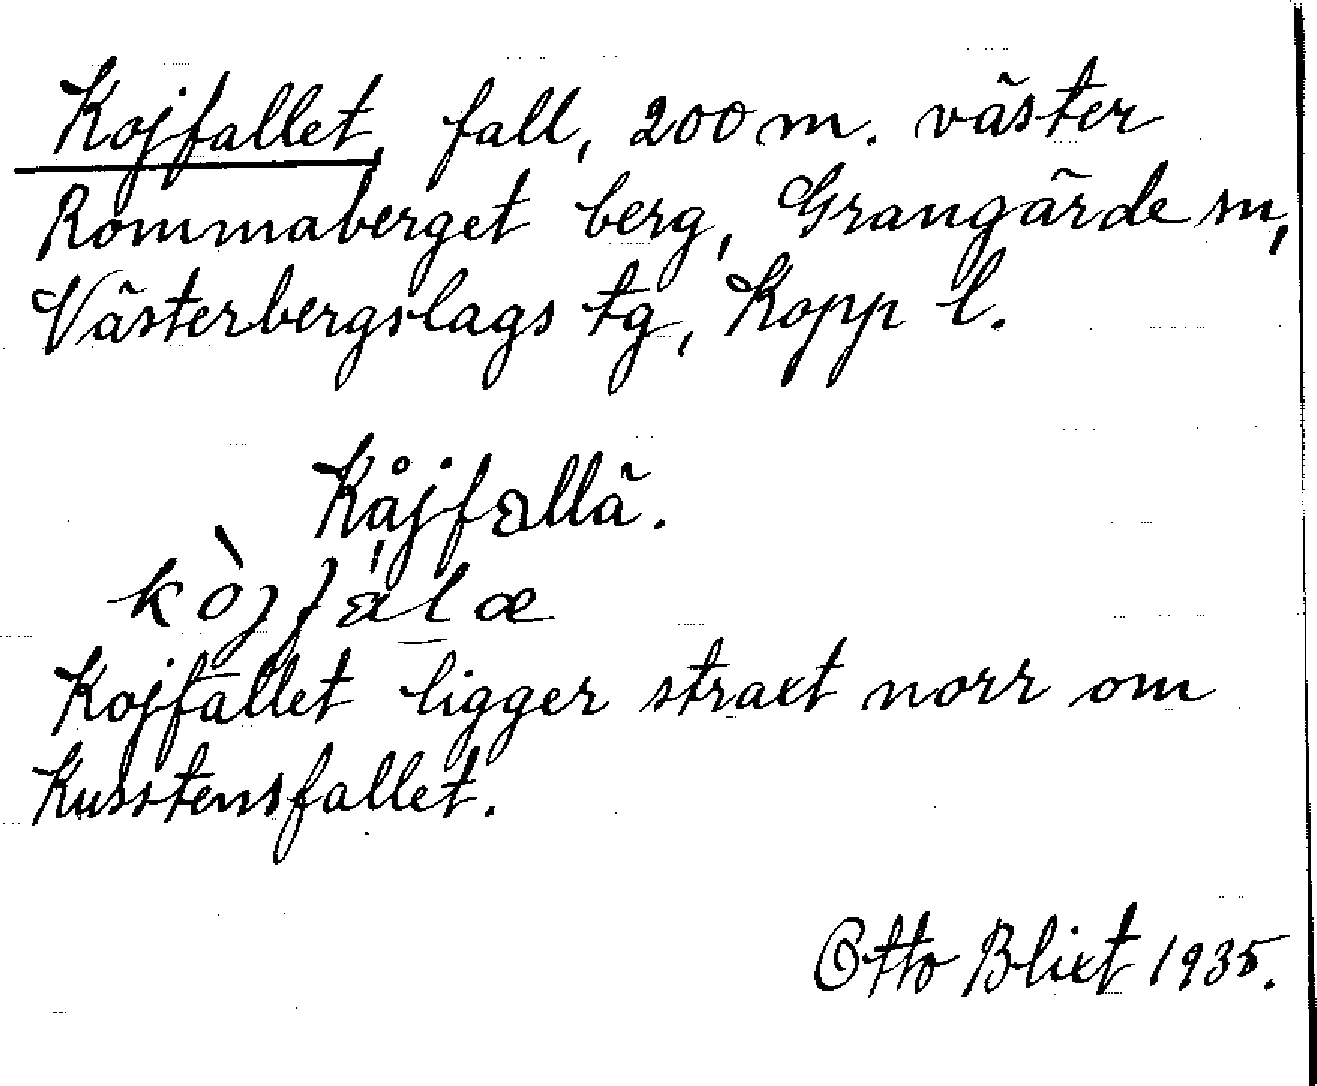 Kojfallet, fall, 200 m. väster
Rommaberget berg, Grangärde sn,
Västerbergslags tg, Kopp l.
Kåjfallä.
kòjfalæ
Kojfallet ligger straxt norr om
Kusstensfallet.
Otto Blixt 1935.